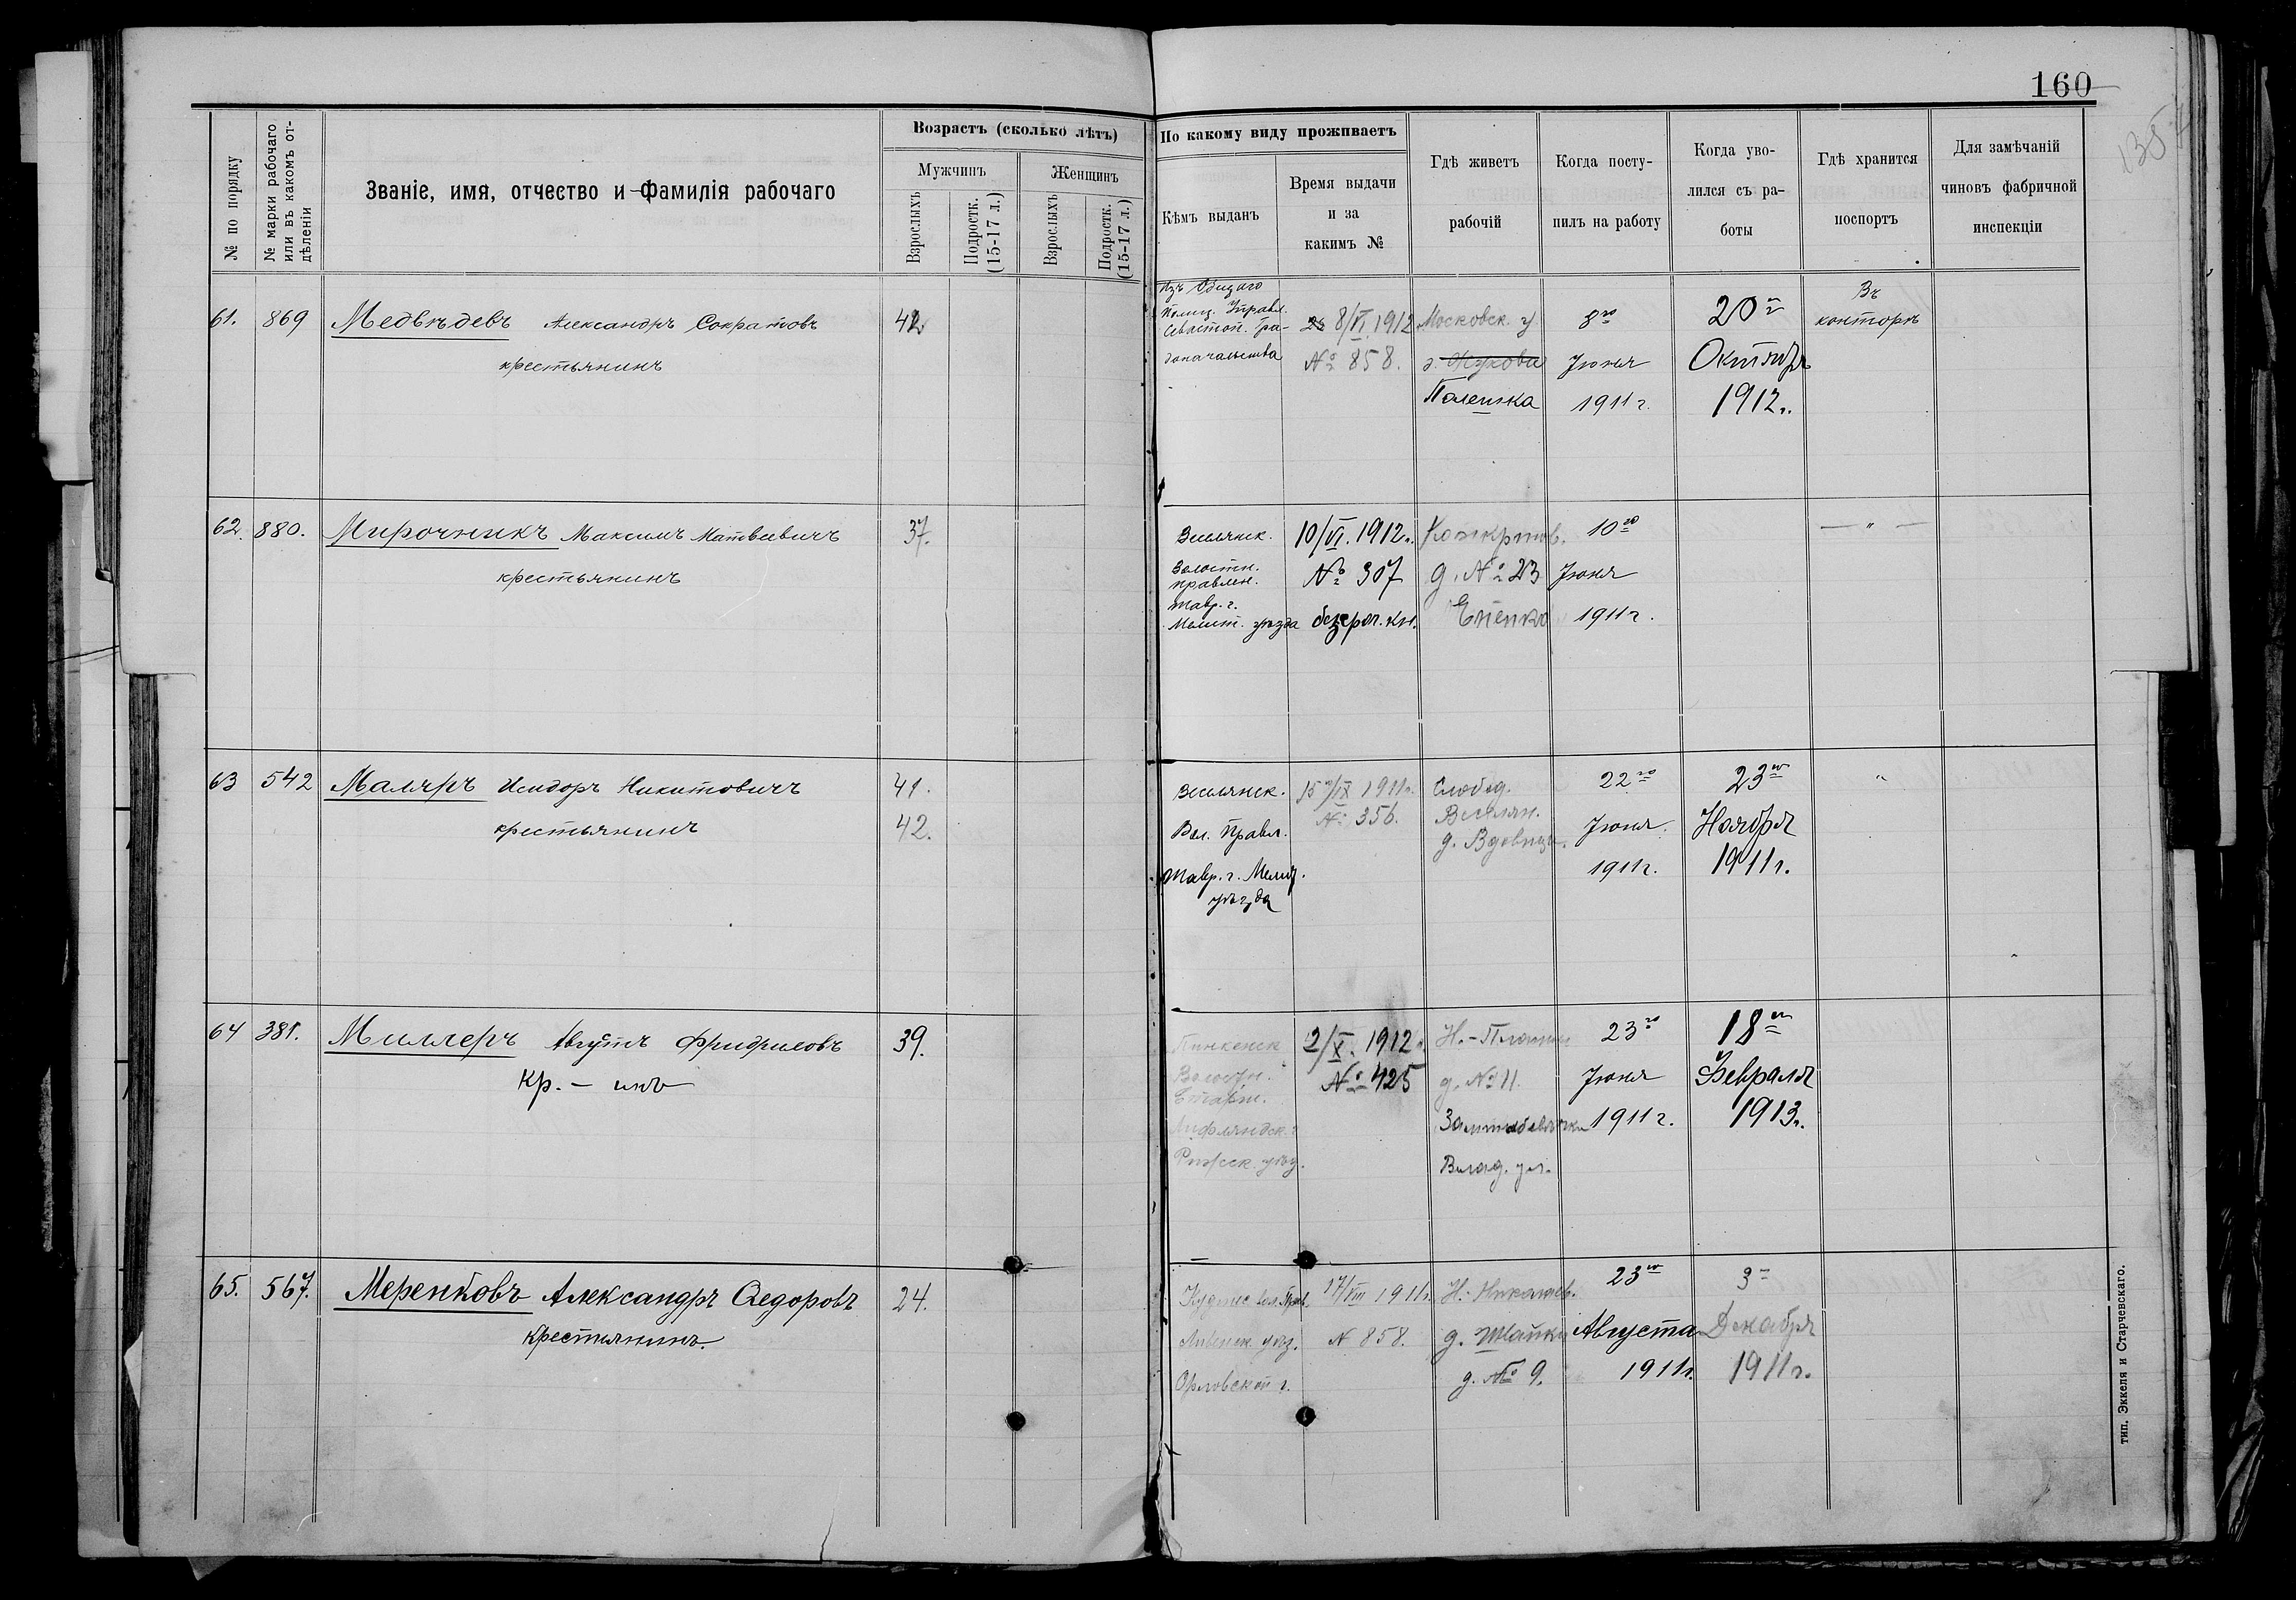 160
№ по порядку
№ марки рабочаго
или въ какомъ от-
дѣленіи
Званіе, имя, отчество и фамилія рабочаго
Возрастъ (сколько лѣтъ)
Мужчинъ
Женщинъ
Взрослыхъ
Подростк.
(15-17 л.)
Взрослыхъ
Подростк.
(15-17 л.)
По какому виду проживаетъ
Кѣмъ выданъ
Время выдачи
и за
какимъ №
Гдѣ живетъ
рабочій
Когда посту-
пилъ на работу
Когда уво-
лился съ ра-
боты
Гдѣ хранится
поспортъ
Для замѣчаній
чиновъ фабричной
инспекціи
61. 869 Медвѣдевъ Александръ Сократовъ 42
крестьянинъ
Изъ Общаго
Полиц. Управл.
Севастоп. Гра-
доначальства
8/VI 1912
№ 858.
Московск. у.
Паленка
8го
Іюня
1911 г.
20го
Октябр
1912 г.
Въ
конторѣ
62. 880. Мирочникъ Максимъ Матвѣевичъ 37.
крестьянинъ
Веселянск.
Волостн.
правлен.
Тавр. г.
Мелит. уѣзда
10/VI. 1912 г.
№ 307
безсроч. кн.
д. № 23
10го
Іюня
1911 г.
— " —
63 542 Маляръ Исидоръ Никитовичъ 41.
крестьянинъ 42.
Веселянск.
Вол. Правл.
Тавр. г. Мелит.
уѣзда
15/IX 1911 г.
№ 356.
Слобод.
Веселян.
д. Вдовицы.
22го
Іюня
1911 г.
23го
Ноября
1911 г.
"
64 381. Миллеръ Августъ Фридриховъ 39.
Кр. – инъ
Пинкенск
Волостн.
Старш.
Лифляндск. г.
Рижск. уѣз.
2/X. 1912 г.
№ 425
д. № 11.
Влад. ул.
23го
Іюня
1911 г.
18го
Февраля
1913 г.
65. 567. Меренковъ Александръ Ѳедоровъ 24.
крестьянинъ.
вол. Прав.
Ливенск. уѣз.
Орловской г.
17/VIII 1911 г.
№ 858.
Н. Николаев.
д. Швайки
д. № 9.
23го
Августа
1911 г.
3го
Декабря
1911 г.
тип. Эккеля и Старчевскаго.